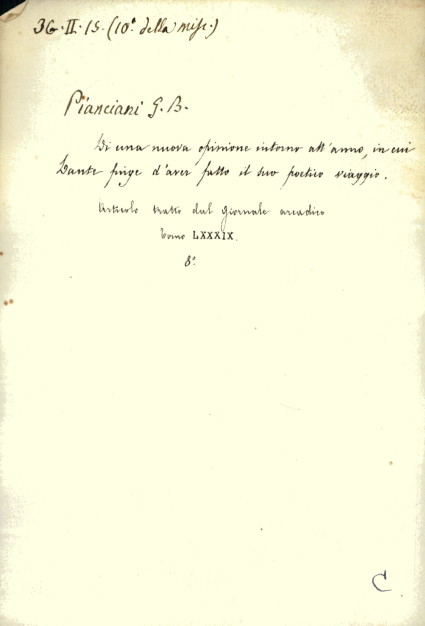 36.II.15. (10ª della misc.)
Pianciani G. B.
Di una nuova opinione intorno all'anno, in cui
Dante finge d'aver fatto il suo poetico viaggio.
Articolo tratto dal Giornale arcadico
Tomo LXXXIX.
8º
C